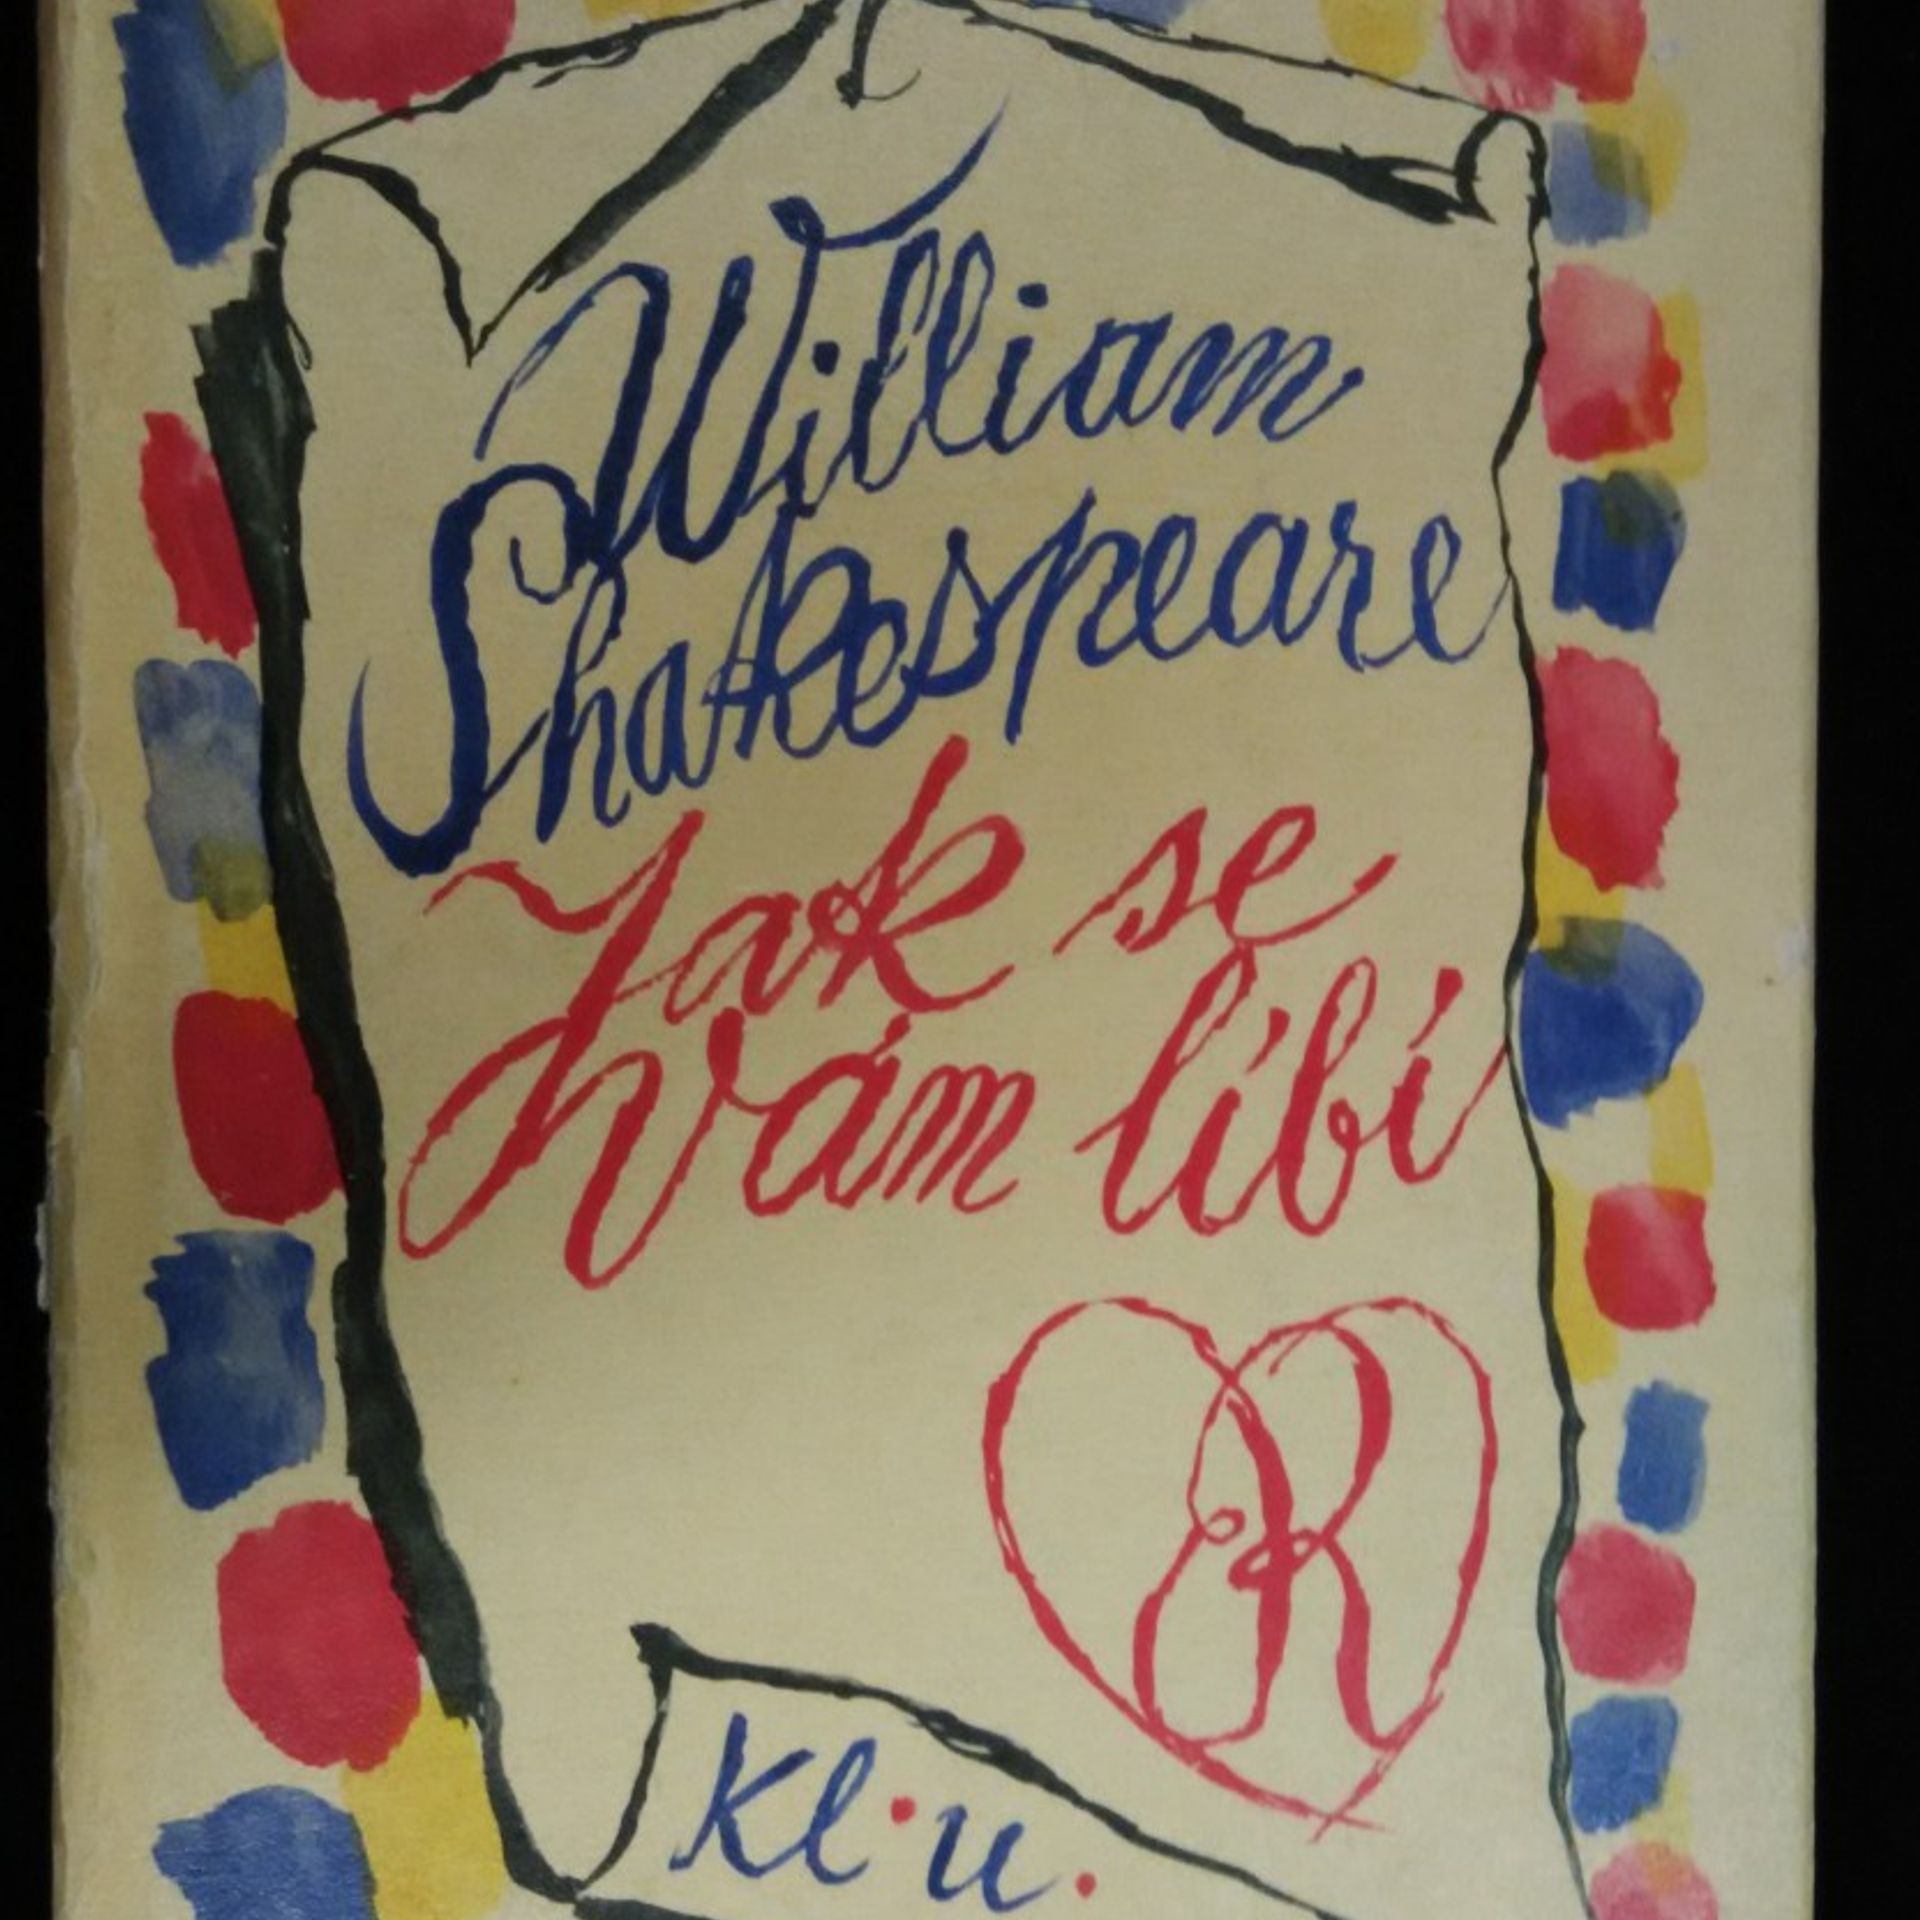 William
Shakespeare
Jak se
vám líbí
R
Kl.u.